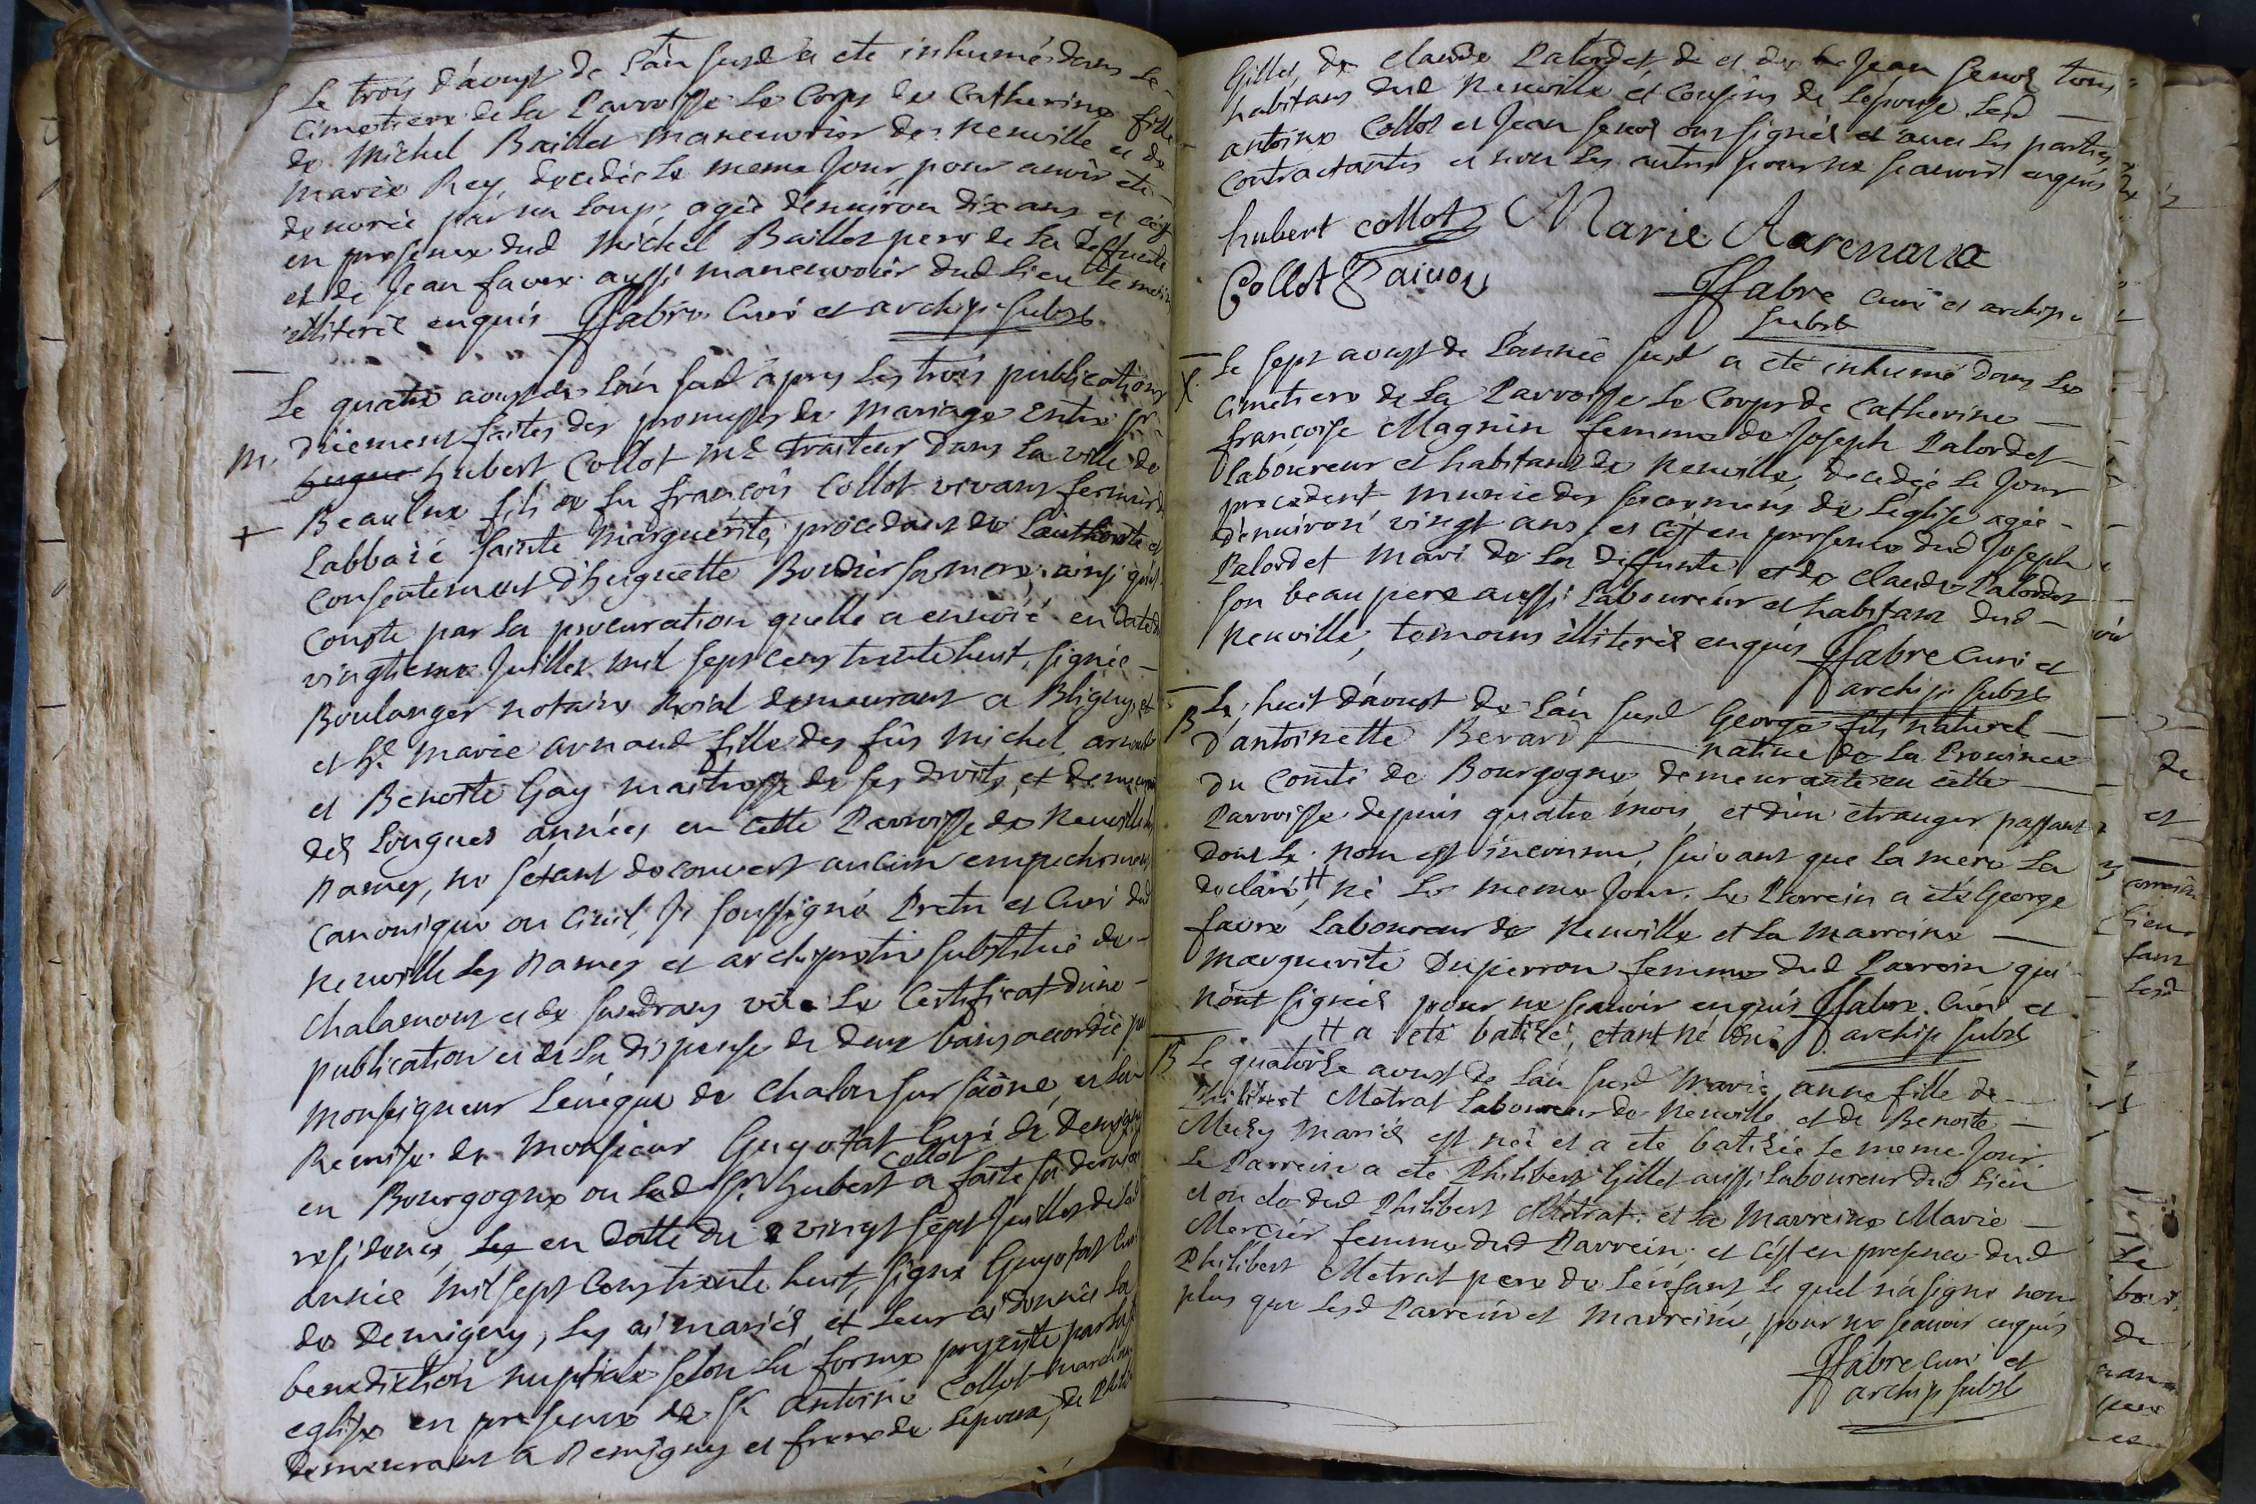 Le trois d'aoust de l'an susd a ete inhumé dans le
cimetiere de la Parroisse le Corps de Catherine fille
de Michel Baillet maneuvrier de Neuville et de
Marie Rey, decedée le meme Jour pour avoir ete
devorée par un Loup, agée denuiron dix ans et c'est
en presence dud Michel Baillet pere de la deffunte
et de Jean favre aussi maneuvrier dud Lieu temoins
illiterés enquis ffabre Curé et archip. subst
Le quatre aoust de l'an susd apres les trois publications
m. duement faites des promesses de Mariage Entre sr
hugue hubert Collot md Traiteur dans la ville de
Beaulne fils de fu françois Collot vivant fermier de
Labbaïe sainte Marguerite, procedant de Lauthorité et
consentement d'huguette Boudier sa mere, ainsi qu'il
conste par la procuration quelle a ennoié en date du
vingtieme Juillet mil sept cens trente huit, signée
Boulanger notaire Roial demeurant a Bligny, et
et he Marie arnaud fille des fûs Michel arnaud
et Benoite Gay maitresse de ses droits, et demeurant
dés Longues années en cette Parroisse de Neuville les
Dames, ne setant decouvert aucun empechement
canonique ou Civil, Je soussigné Pretre et Curé dud
Neuville les Dames et archipretre substitué de
Chalamont et de sandrans vû le Certificat d'une
publication et de la dispense de deux bans accordée par
Monseigneur Leveque de Chalon sur saône, et la
Remise de Monsieur Guyotat Curé de Demigny
en Bourgogne ou Led sr hubert Collot a faite sa derniere
residence, en datte du vingt sept Juillet de lad
année mil sept Cens trente huit, signe Guyotat Curé
de Demigny, les ai mariés et leur ai donnée la
benediction nuptiale selon la forme prescrite par lad
eglise en presence de sr antoine Collot marchand
demeurant a Demigny et frere de l'epoux, de Phili
Gillet, de claude Palordet de et de Jean Senod tous
habitans dud Neuville et cousins de l'épouse. Lesd
antoine Collot et Jean Senod ont signés et avec les parties
contractantes et non les autres pour ne sçauoir enquis
hubert collot Marie Aarenaua
Collot
ffabre curé et archip.
subst
Le sept aoust de l'année susd a ete inhumé dans le
X. cimetiere de la Parroisse le Corps de Catherine
françoise Magnin femme de Joseph Palordet
laboureur et habitant de Neuville, decedée le Jour
precedent munie des sacremens de l'eglise agée
d'enuiron vingt ans, et c'est en presence dud Joseph
Palordet mari de la deffunte et de claude Palordet
son beau pere aussi laboureur et habitant dud
Neuville, temoins illiterés enquis ffabre curé et
archip. subst
Le huit d'aoust de l'an susd George fils naturel
B d'antoinette Berard native de la Province
du comté de Bourgogne demeurante en cette
Parroisse depuis quatre mois, et d'un etranger passant
dont le nom est inconnu, suivant que la mere la
declaré ++, né le meme Jour. Le Parrein a été George
favre Laboureur de Neuville et la marreine
marguerite Duperron femme dud Parrein qui
n'ont signés pour ne sçavoir enquis ffabre. Curé et
++ a eté batisé, etant né archip subst
B Le quatorze aoust de l'an susd Marie anne fille de
Philibert Métrat Laboureur de Neuville et de Benoite
Mury mariés est née et a ete batisée le meme Jour.
Le Parrein a ete Philibert Gillet aussi Laboureur dud Lieu
et oncle dud Philibert Métrat et la Marreine Marie
Mercier femme dud Parrein, et c'est en presence dud
Philibert Metrat pere de l'enfant le quel n'a signe non
plus que Lesd Parrein et Marreine, pour ne sçauoir enquis
ffabre curé et
archip subst